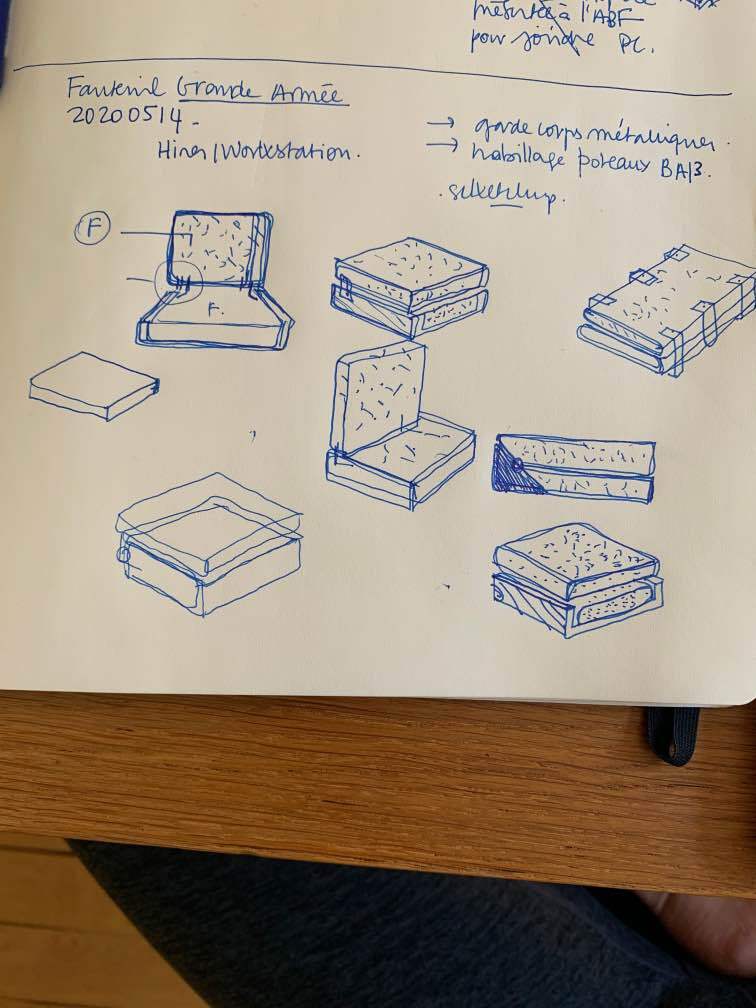 à l'ABF
pour joindre PC.
Fauteuil Grande Armée
20200514-
Hiner/Workstation.
→ garde corps métalliques.
→ habillage poteaux BA13.
. sketchup.
F
F.